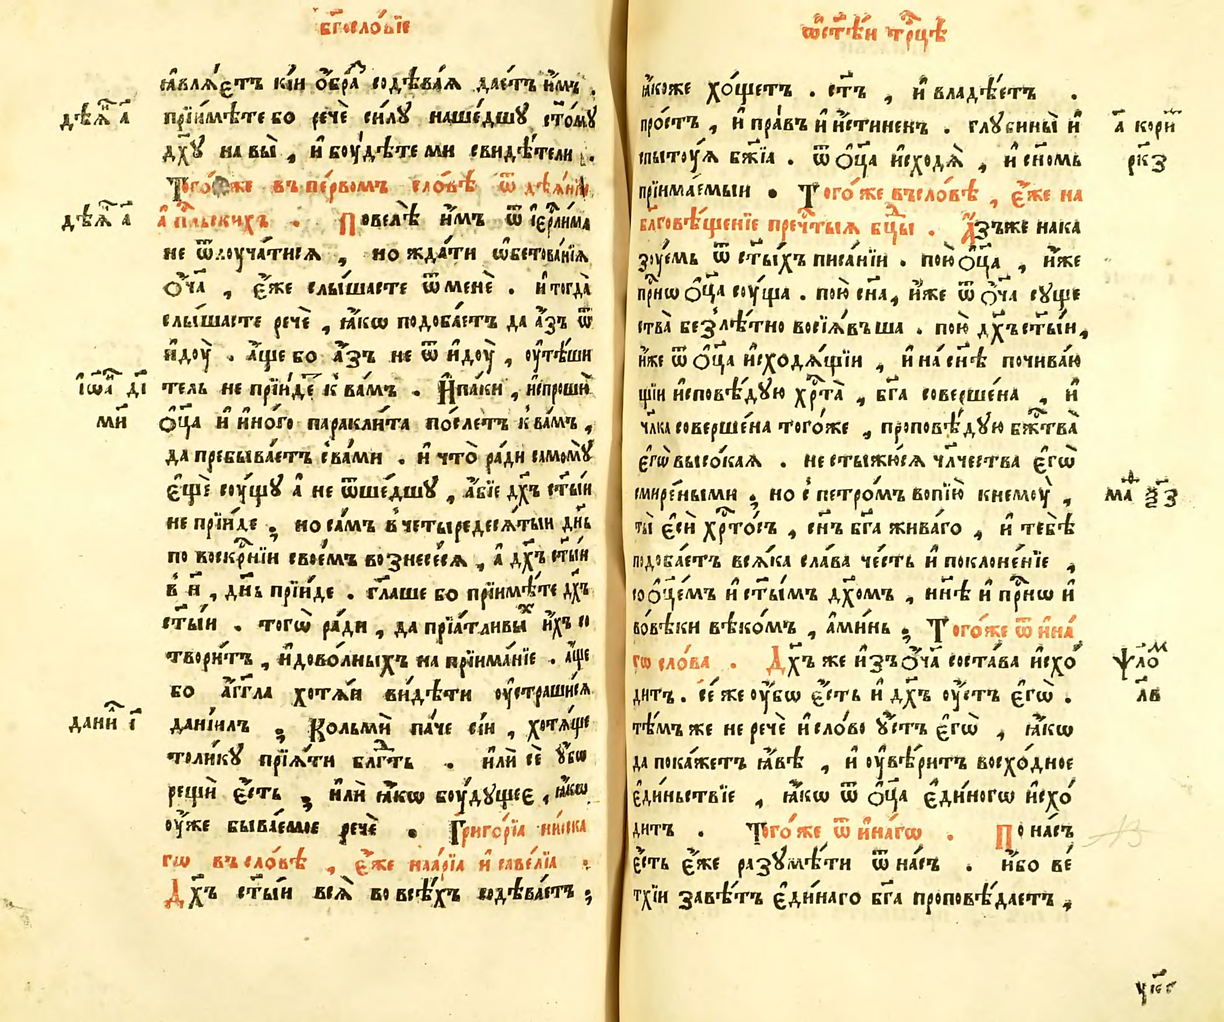 бг҃ословїе
ѿст҃ѣи трⷪ҇цѣ
ѧвлѧ́етъ кі́и ѻ҆́браⷥ҇ содѣва́ѧ дае́тъ и҆̀мъ .
дѣѧⷩ҇ а҃
прїи́мѣте бо речѐ си́лу наше́дшу ст҃о́му
дх҃у на вы̀ , и҆ боу́дѣте ми свидѣ́тели .
Того́же въ пе́рвомъ сло́вѣ ѿ дѣѧ́нїи
дѣѧⷩ҇ а҃
а҆пⷭ҇льскихъ . Повелѣ̀ и҆̀мъ ѿ і҆ерⷭ҇ли́ма
не ѿлоуча́тисѧ , но жда́ти ѡ҆бѣтова́нїѧ
ѻ҆́ч҃а , є҆́же слы́шасте ѿ менѐ . и҆ тогда̀
слы́шасте речѐ , ꙗ҆́кѡ подоба́етъ да а҆́зъ ѿ
и҆доу̀ . а҆́ще бо а҆́зъ не ѿ и҆доу̀ , оу҆тѣ́ши
і҆ѡⷩ҇ а҃ ді
тель не прїи́де к ва́мъ . И҆па́ки , и҆спрошꙋ̀
ми
ѻ҆ц҃а̀ и҆ и҆но́го паракли́та по́слетъ к ва́мъ ,
да пребыва́етъ с ва́ми . и҆ что̀ ра́ди самомꙋ̀
є҆щѐ соу́щу а҆ не ѿше́дшу , а҆́бїе дх҃ъ ст҃ы́и
не прїи́де ; но са́мъ в четыредесѧ́тыи дн҃ь
по воскрⷭ҇нїи свое́мъ вознесе́сѧ , а҆ дх҃ъ ст҃ы́и
в н҃ , дн҃ь прїи́де . гл҃аше бо прїимѣ́те дх҃ъ
ст҃ы́и . тогѡ̀ ра́ди , да прїѧ́тливыⷯ и҆́хъ со
твори́тъ , и҆ дово́лныхъ на прїима́нїе . а҆́ще
бо а҆́гг҃ла хотѧ́и ви́дѣти оу҆страши́сѧ
даниⷧ҇ і҃
данїи́лъ ; Ко́льми па́че сі́и , хотѧ́ще
толи́ку прїѧ́ти блг҃ть . и҆лѝ сѐ оу҆́бѡ
рещѝ є҆́сть ; и҆лѝ ꙗ҆́кѡ боу́дущее , ꙗ҆́кѡ
оу҆́же быва́емое речѐ . Григо́рїа ни́ска
гѡ въ сло́вѣ , є҆́же на а҆́рїа и҆ саве́лїа :
Дх҃ъ ст҃ы́и всѧ̀ во всѣ́хъ содѣва́етъ ;
ꙗ҆́коже хо́щетъ . ст҃ъ , и҆ владѣ́етъ .
про́стъ , и҆ пра́въ и҆ и҆́стиненъ . глꙋбины̀ и҆
а҃ кориⷩ҇
ркз
спытоу́ѧ бж҃їа . ѿ ѻ҆ц҃а̀ и҆сходѧ̀ , и҆ сн҃омь
прїима́емыи . Того́же въ сло́вѣ , є҆́же на
блг҃овѣ́щенїе преⷱ҇тыѧ бцⷣы . А҆́зъ же нака
зу́емь ѿ ст҃ы́хъ писа́нїи . пою̀ ѻ҆ц҃а̀ , и҆́же
прⷭ҇нѡ ѻ҆ц҃а̀ соу́ща . пою̀ сн҃а , и҆́же ѿ ѻ҆́ч҃а суще
ства̀ безлѣ́тно восїѧ́въша . пою̀ дх҃ъ ст҃ы́и ,
и҆́же ѿ ѻ҆ц҃а̀ и҆сходѧ́щїи , и҆ на сн҃ѣ почива́ю
щїи и҆сповѣ́дую хрⷭ҇та̀ , бг҃а совершє́на , и҆
чл҃ка соверше́на того́же , проповѣ́дую бж҃тва̀
є҆гѡ̀ высо́каѧ . не стыжю́сѧ чл҃чества є҆гѡ̀
смире́ными ; но с петро́мъ вопїю̀ к немоу̀ ,
маⷴ҇ ѯ҃з
ты̀ є҆сѝ хрⷭ҇то́съ , сн҃ъ бг҃а жива́го , и҆ тебѣ̀
подоба́етъ всѧ́ка сла́ва че́сть и҆ поклоне́нїе ,
со ѻ҆ц҃е́мъ и҆ ст҃ы́мъ дх҃омъ , нн҃ѣ и҆ прⷭ҇нѡ и҆
во́вѣки вѣко́мъ , а҆ми́нь ; Того́же ѿ и҆на́
гѡ сло́ва . Дх҃ъ же и҆з̾ ѻ҆́ч҃а соста́ва и҆схо́
ѱаⷧ҇оⷨ
лв
дитъ . се́ же оу҆́бѡ є҆́сть и҆ дх҃ъ оу҆́стъ є҆гѡ̀ .
тѣ́мъ же не речѐ и҆ сло́во оу҆́стъ є҆гѡ̀ , ꙗ҆́кѡ
да пока́жетъ ꙗ҆́вѣ , и҆ оу҆вѣ́ритъ восхо́дное
є҆ди́ньствїе , ꙗ҆́кѡ ѿ ѻ҆ц҃а̀ є҆ди́ногѡ и҆схо́
дитъ . Того́же ѿ и҆на́гѡ . По на́съ
є҆́сть є҆́же разумѣ́ти ѿ на́съ . и҆́бо ве́
тхїи завѣ́тъ є҆ди́наго бг҃а проповѣ́даетъ ,